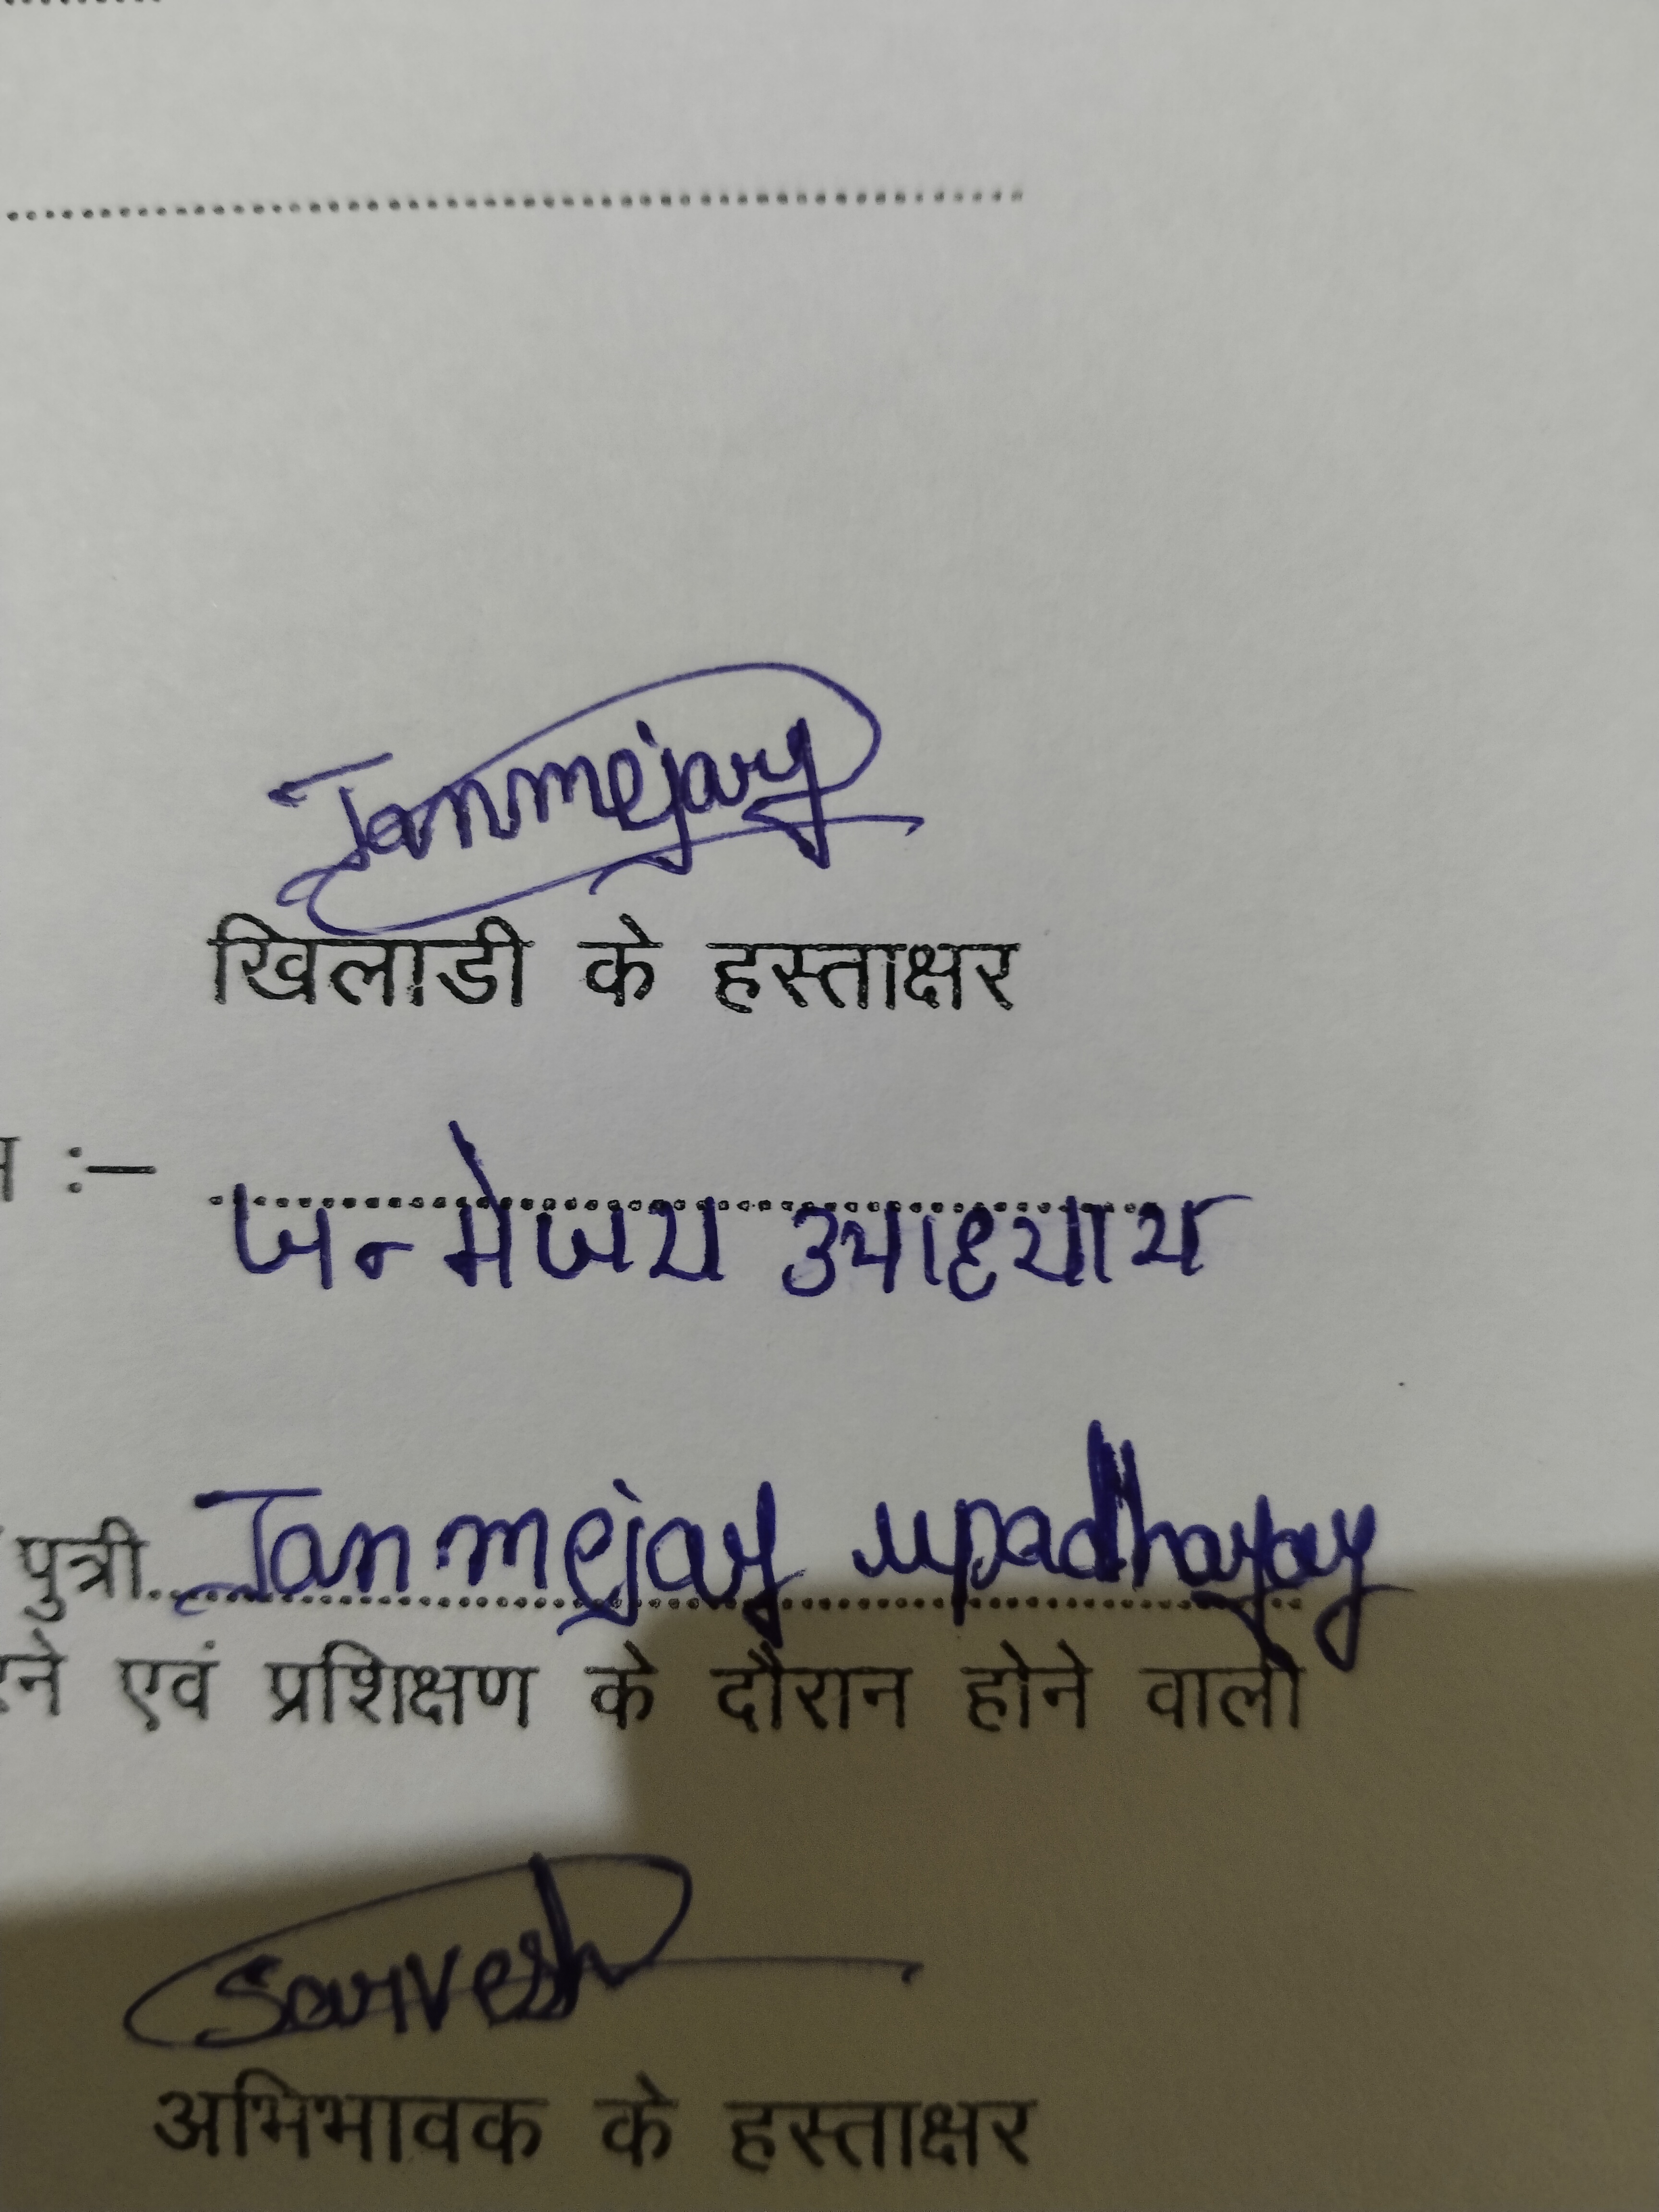 Janmejay
खिलाडी के हस्ताक्षर
:– जन्मेजय उपाध्याय
पुत्री Janmejay upadhayay
एवं प्रशिक्षण के दौरान होने वाली
Sarvesh
अभिभावक के हस्ताक्षर